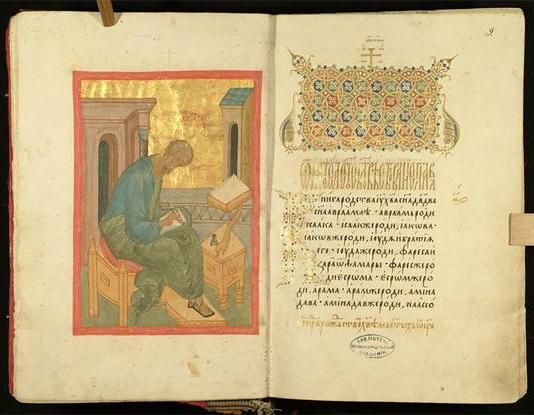 9.
Книга родства іу х҃ва сн҃а дв҃да
сн҃а авраамлѧ · авраамъ роди
исаака · исаакъ же роди, іакова ·
іаковъ же роди, іоудѫ и братїѧ
его · іоуда же роди, фареса и
зара ѿ ѳамары · фаресъ же ро
ди есрѡма · есрѡмъ же ро
ди, арама · арам же роди, амина
дава · аминадав же роди, наассо
БИБЛІОТЕКА
АКАДЕМІИ